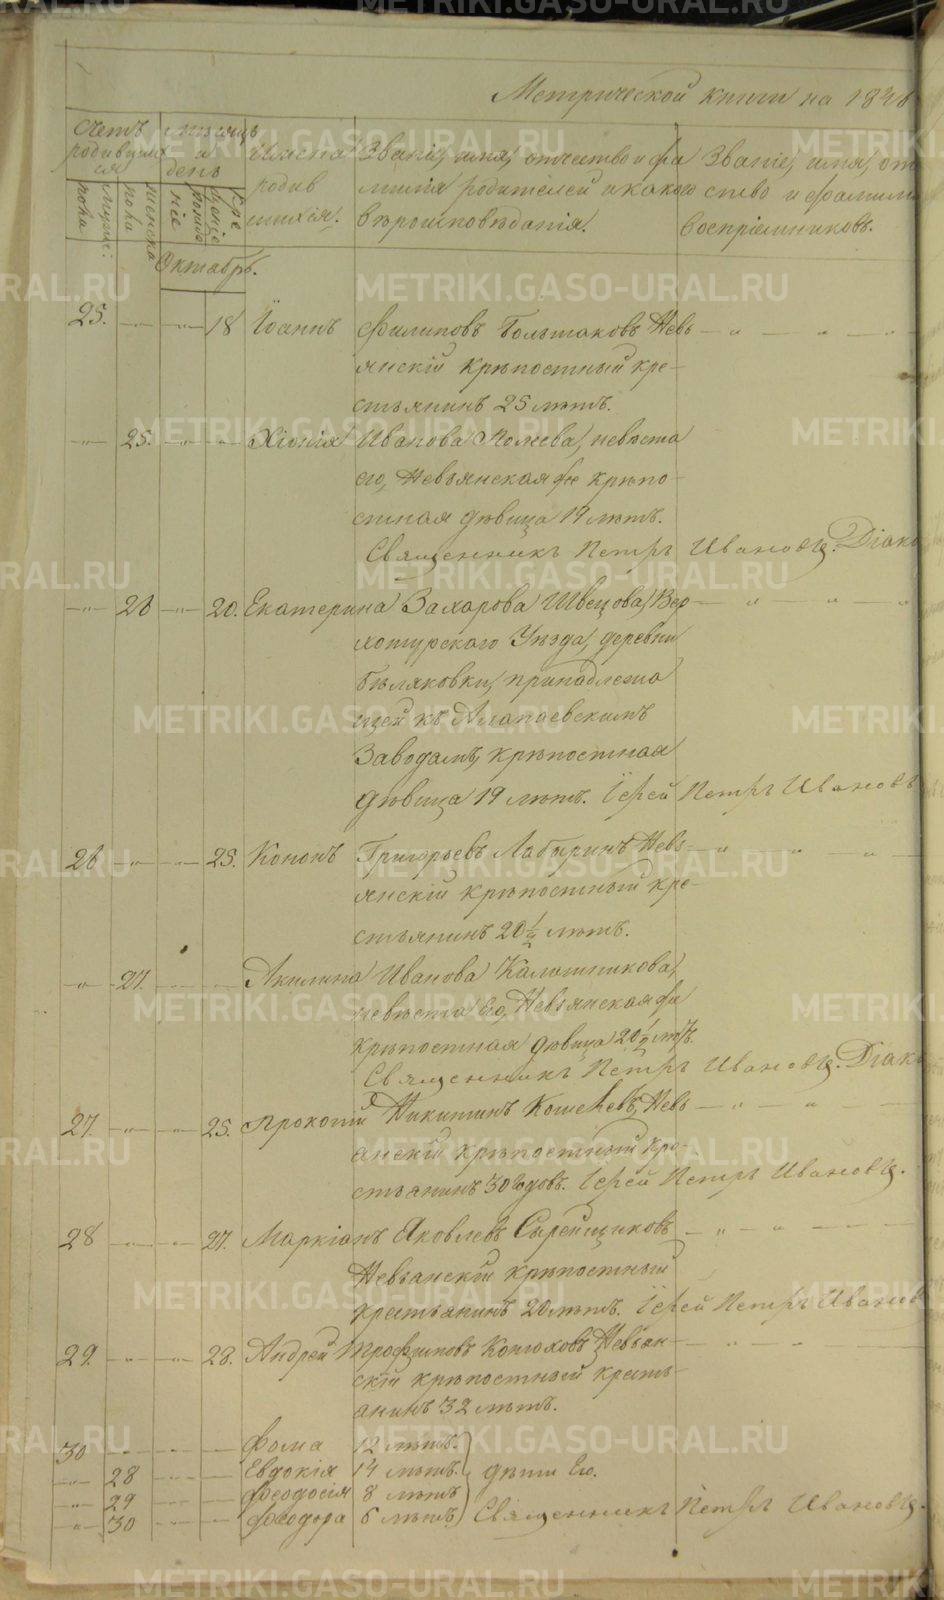 Метрической книги на 184
Счетъ родившихся
Мѣсяцъ и день
Имена родившихся.
Званіе, имя, отчество и фамилія родителей и какого вѣроисповѣданія.
Званіе, имя, от
ство и фамилія
Воспріемниковъ.
Мужеска пола
Женска пола
Рожденіе
Крещеніе
Октябрь.
25. —"— —"— 18 Іоаннъ Филиповъ Большаковъ Невь —"—"—"
янскій крѣпостный кре-
стьянинъ 25 лѣтъ.
—"— 25. —"— —"— Хіонія Иванова Полжева, невѣста
его, Невьянская же крѣпо-
стная дѣвица 19 лѣтъ.
Священникъ Петръ Ивановъ. Діако
—"— 26 —"— 20. Екатерина Захарова Швецова, Вер —"—"—"
хотурского Уѣзда, деревни
Бѣляковки, принадлежа
щей къ Алапаевскимъ
Заводамъ, крѣпостная
дѣвица 19 лѣтъ. Іерей Петръ Ивановъ
26 —"— —"— 25. Кононъ Григорьевъ Лабыринъ Невь- —"—"—"
янскій крѣпостный кре-
стьянинъ 20½ лѣтъ.
—"— 27. — — Акилина Иванова Калашникова,
невѣста его, Невьянская же
крѣпостная дѣвица 20½ лѣтъ.
Священникъ Петръ Ивановъ. Діако
27. —"— —"— 25. Прокопій Никитинъ Кошеневъ, Невь —"—"
янскій крѣпостный кре-
стьянинъ 30 годовъ. Іерей Петръ Ивановъ.
28 —"— —"— 27. Маркіанъ Яковлевъ Сырейщиковъ —"—"
Невьянскій крѣпостный
крестьянинъ 20 лѣтъ. Іерей Петръ Иванов
29. —"— —"— 28. Андрей Трофимовъ Конюховъ Невьян- —"—"
скій крѣпостный кресть-
янинъ 32 лѣтъ.
30 — — — Фома 12 лѣтъ.
—"— 28 — — Евдокія 14 лѣтъ. дѣти Его.
—"— 29 — — Феодосія 8 лѣтъ
—"— 30 — — Феодора 6 лѣтъ Священникъ Петръ Ивановъ.
METRIKI.GASO-URAL.RU